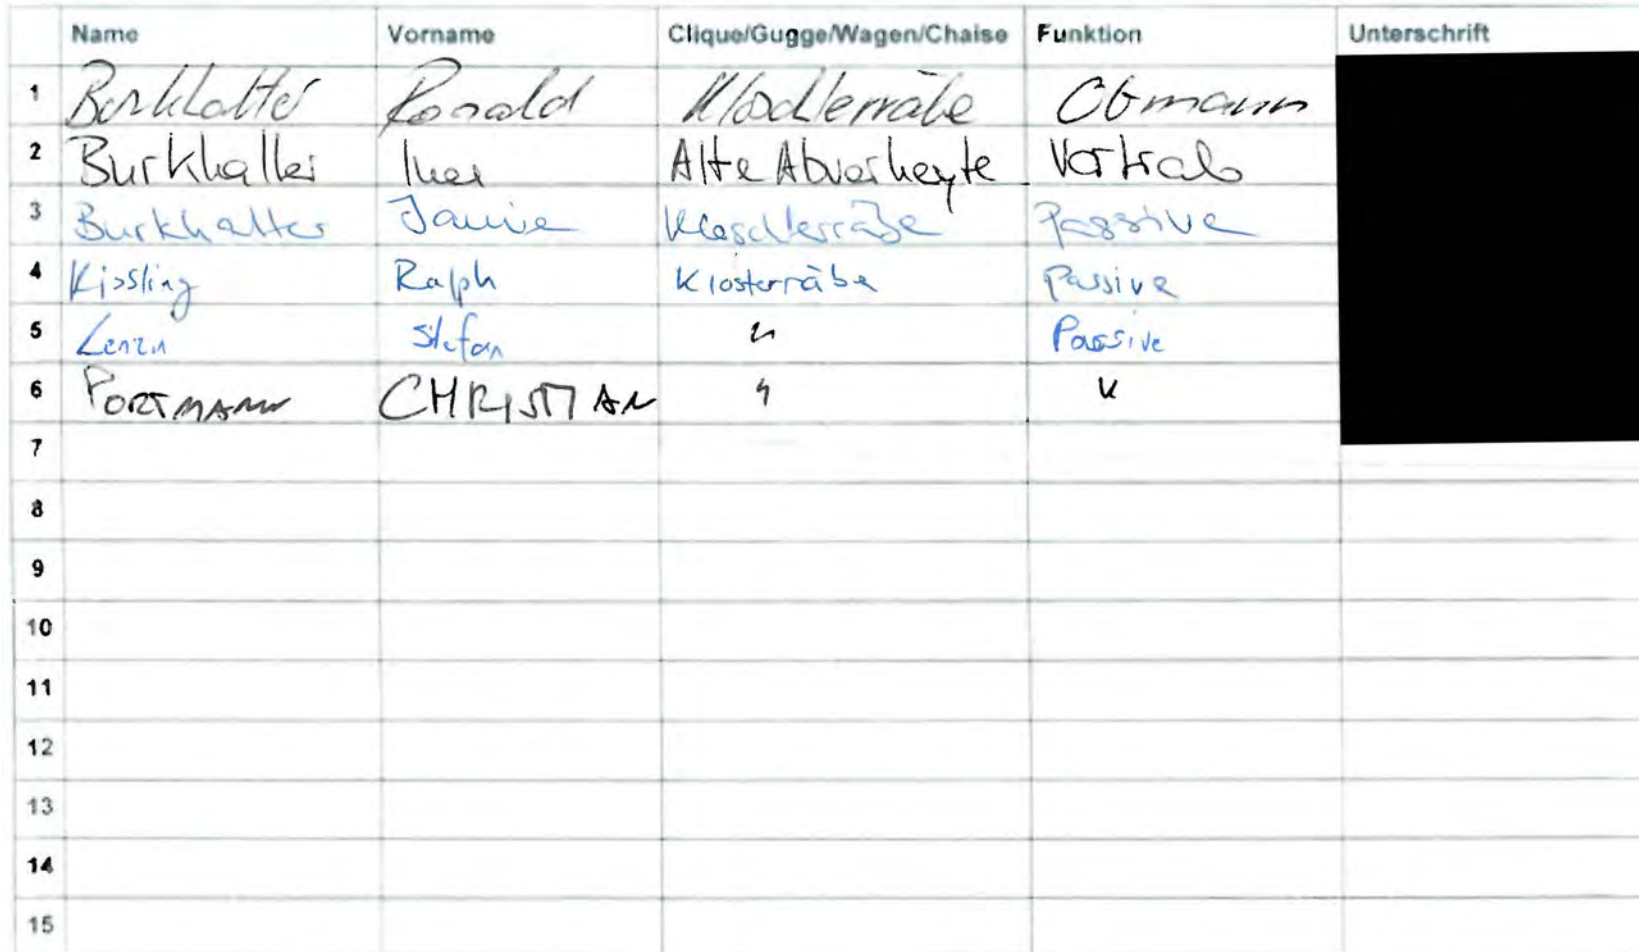 Name Vorname Clique/Gugge/Wagen/Chaise Funktion Unterschrift
1 Burkhalter Ronald Obmann
2 Burkhalter Alte Vortrab
3 Burkhalter Passive
4 Kissling Ralph Klosterräbe Passive
5 Lenzin Stefan " Passive
6 PORTMANN CHRISTIAN " "
7
8
9
10
11
12
13
14
15